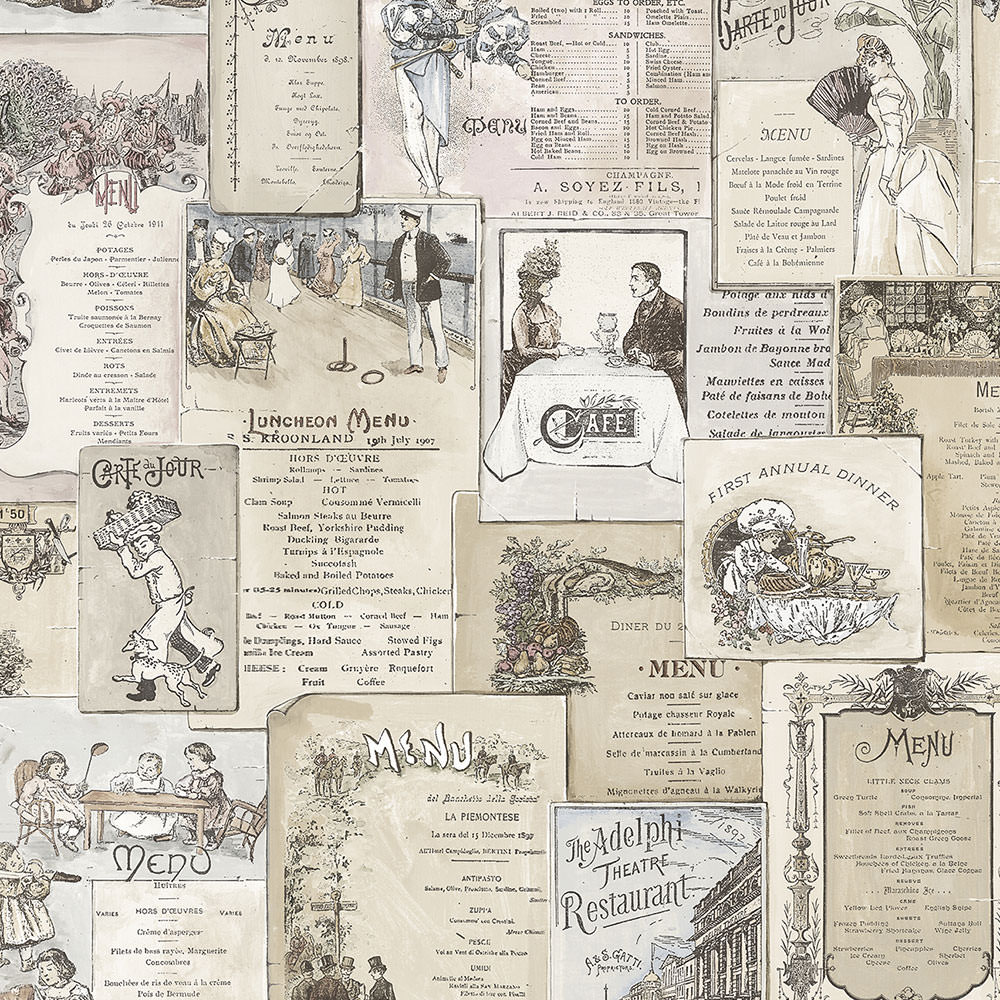 Menu
d. 12. November 1898.
Klar Suppe.
Kogt Lax.
EGGS TO ORDER, ETC.
Boiled (two) with 1 Roll
Poached with Toast
Fried
Omelette Plain
Scrambled
Ham Omelette
SANDWICHES.
Roast Beef, —Hot or Cold
Club
Ham
Egg
Cheese
Sardine
Tongue
Swiss Cheese
Chicken
Fried Oyster
Hamburger
Combination (Ham an
Corned Beef
Minced Ham
Bean
Salmon
American
TO ORDER.
Ham and Eggs
Cold Corned Beef
Ham and Beans
Ham and Potato Salad
Corned Beef and Beans
Corned Beef & Potato
Bacon and Eggs
Hot Chicken Pie
Fried Ham and Roll
Corned Beef Hash
Egg on Minced Ham
Browned Hash
Egg on Beans
Egg on Hash
Hot Baked Beans
Egg on Browned
Cold Ham
MENU
CHAMPAGNE.
A. SOYEZ FILS, 
is now Shipping to England 1880 Vintage—the F
ALBERT J. REID & CO., 33 & 35, Great Tower
CARTE DU JOUR
MENU
Cervelas - Langue fumée - Sardines
Matelote panachée au Vin rouge
Bœuf à la Mode froid en Terrine
Poulet froid
Sauce Rémoulade Campagnarde
Salade de Laitue rouge au Lard
Pâté de Veau et Jambon
Fraises à la Crème - Palmiers
Café à la Bohémienne
MENU
du Jeudi 26 Octobre 1911
POTAGES
Perles du Japon - Parmentier - Julienne
HORS-D'ŒUVRE
Beurre - Olives - Céleri - Rillettes
Melon - Tomates
POISSONS
Truite saumonée à la Bernay
Croquettes de Saumon
ENTRÉES
Civet de Lièvre - Canetons en Salmis
ROTS
Dinde au cresson - Salade
ENTREMETS
Haricots verts à la Maitre d'Hôtel
Parfait à la vanille
DESSERTS
Fruits variés - Petits Fours
Mendiants
LUNCHEON MENU
S.S. KROONLAND 19th July 1907
HORS D'ŒUVRE
Rollmops — Sardines
Shrimp Salad — Lettuce — Tomatoes
HOT
Clam Soup Consommé Vermicelli
Salmon Steaks au Beurre
Roast Beef, Yorkshire Pudding
Duckling Bigararde
Turnips à l'Espagnole
Succotash
Baked and Boiled Potatoes
(15-25 minutes) Grilled Chops, Steaks, Chicken
COLD
Roast Mutton — Corned Beef — Ham
Chicken — Ox Tongue — Sausage
Dumplings, Hard Sauce Stewed Figs
Ice Cream Assorted Pastry
CHEESE: Cream Gruyère Roquefort
Fruit Coffee
CAFÉ
Potage aux nids d'
Boudins de perdreaux
Fruites à la Wol
Jambon de Bayonne bra
Sauce Mad
Mauviettes en caisses
Paté de faisans de Bohe
Cotelettes de mouton
Salade de langoustes
CARTE du JOUR
1'50
FIRST ANNUAL DINNER
ME
Filet de Sole
Roast Turkey with
Roast Beef and
Spinach and
Mashed, Baked
Apple Tart.
DINER DU 2
MENU
Caviar non salé sur glace
Potage chasseur Royale
Attereaux de homard à la Pablen
Selle de marcassin à la Cumberland
Truites à la Vaglio
Mignonettes d'agneau à la Walkyrie
MENU
del Banchetto della Società
LA PIEMONTESE
La sera del 15 Dicembre 1897
ANTIPASTO
ZUPPA
PESCE
UMIDI
MENU
HUITRES
VARIÉS HORS D'ŒUVRES VARIÉS
Crème d'asperges
Filets de bass rayée, Marguerite
Concombres
Bouchées de ris de veau à la crème
Pois de Bermude
1897
The Adelphi
THEATRE
Restaurant
A. & S. GATTI
PROPRIETORS.
MENU
LITTLE NECK CLAMS
SOUP
Green Turtle Consomme, Imperial
FISH
Soft Shell Crabs, a la Tartar
REMOVES
Fillet of Beef, aux Champignons
Roast Green Goose
ENTREES
Sweetbreads Larded, aux Truffles
Bouchees of Chicken, a la Reine
Fried Bananas, Glace Cognac
RELEVE
Maraschino Ice
GAME
Yellow Leg Plover English Snipe
SWEETS
Frozen Pudding Sultana Roll
Strawberry Shortcake Wine Jelly
DESSERT
Strawberries Pineapples Cherries
Ice Cream Sherbet
Cheese Olives
Coffee